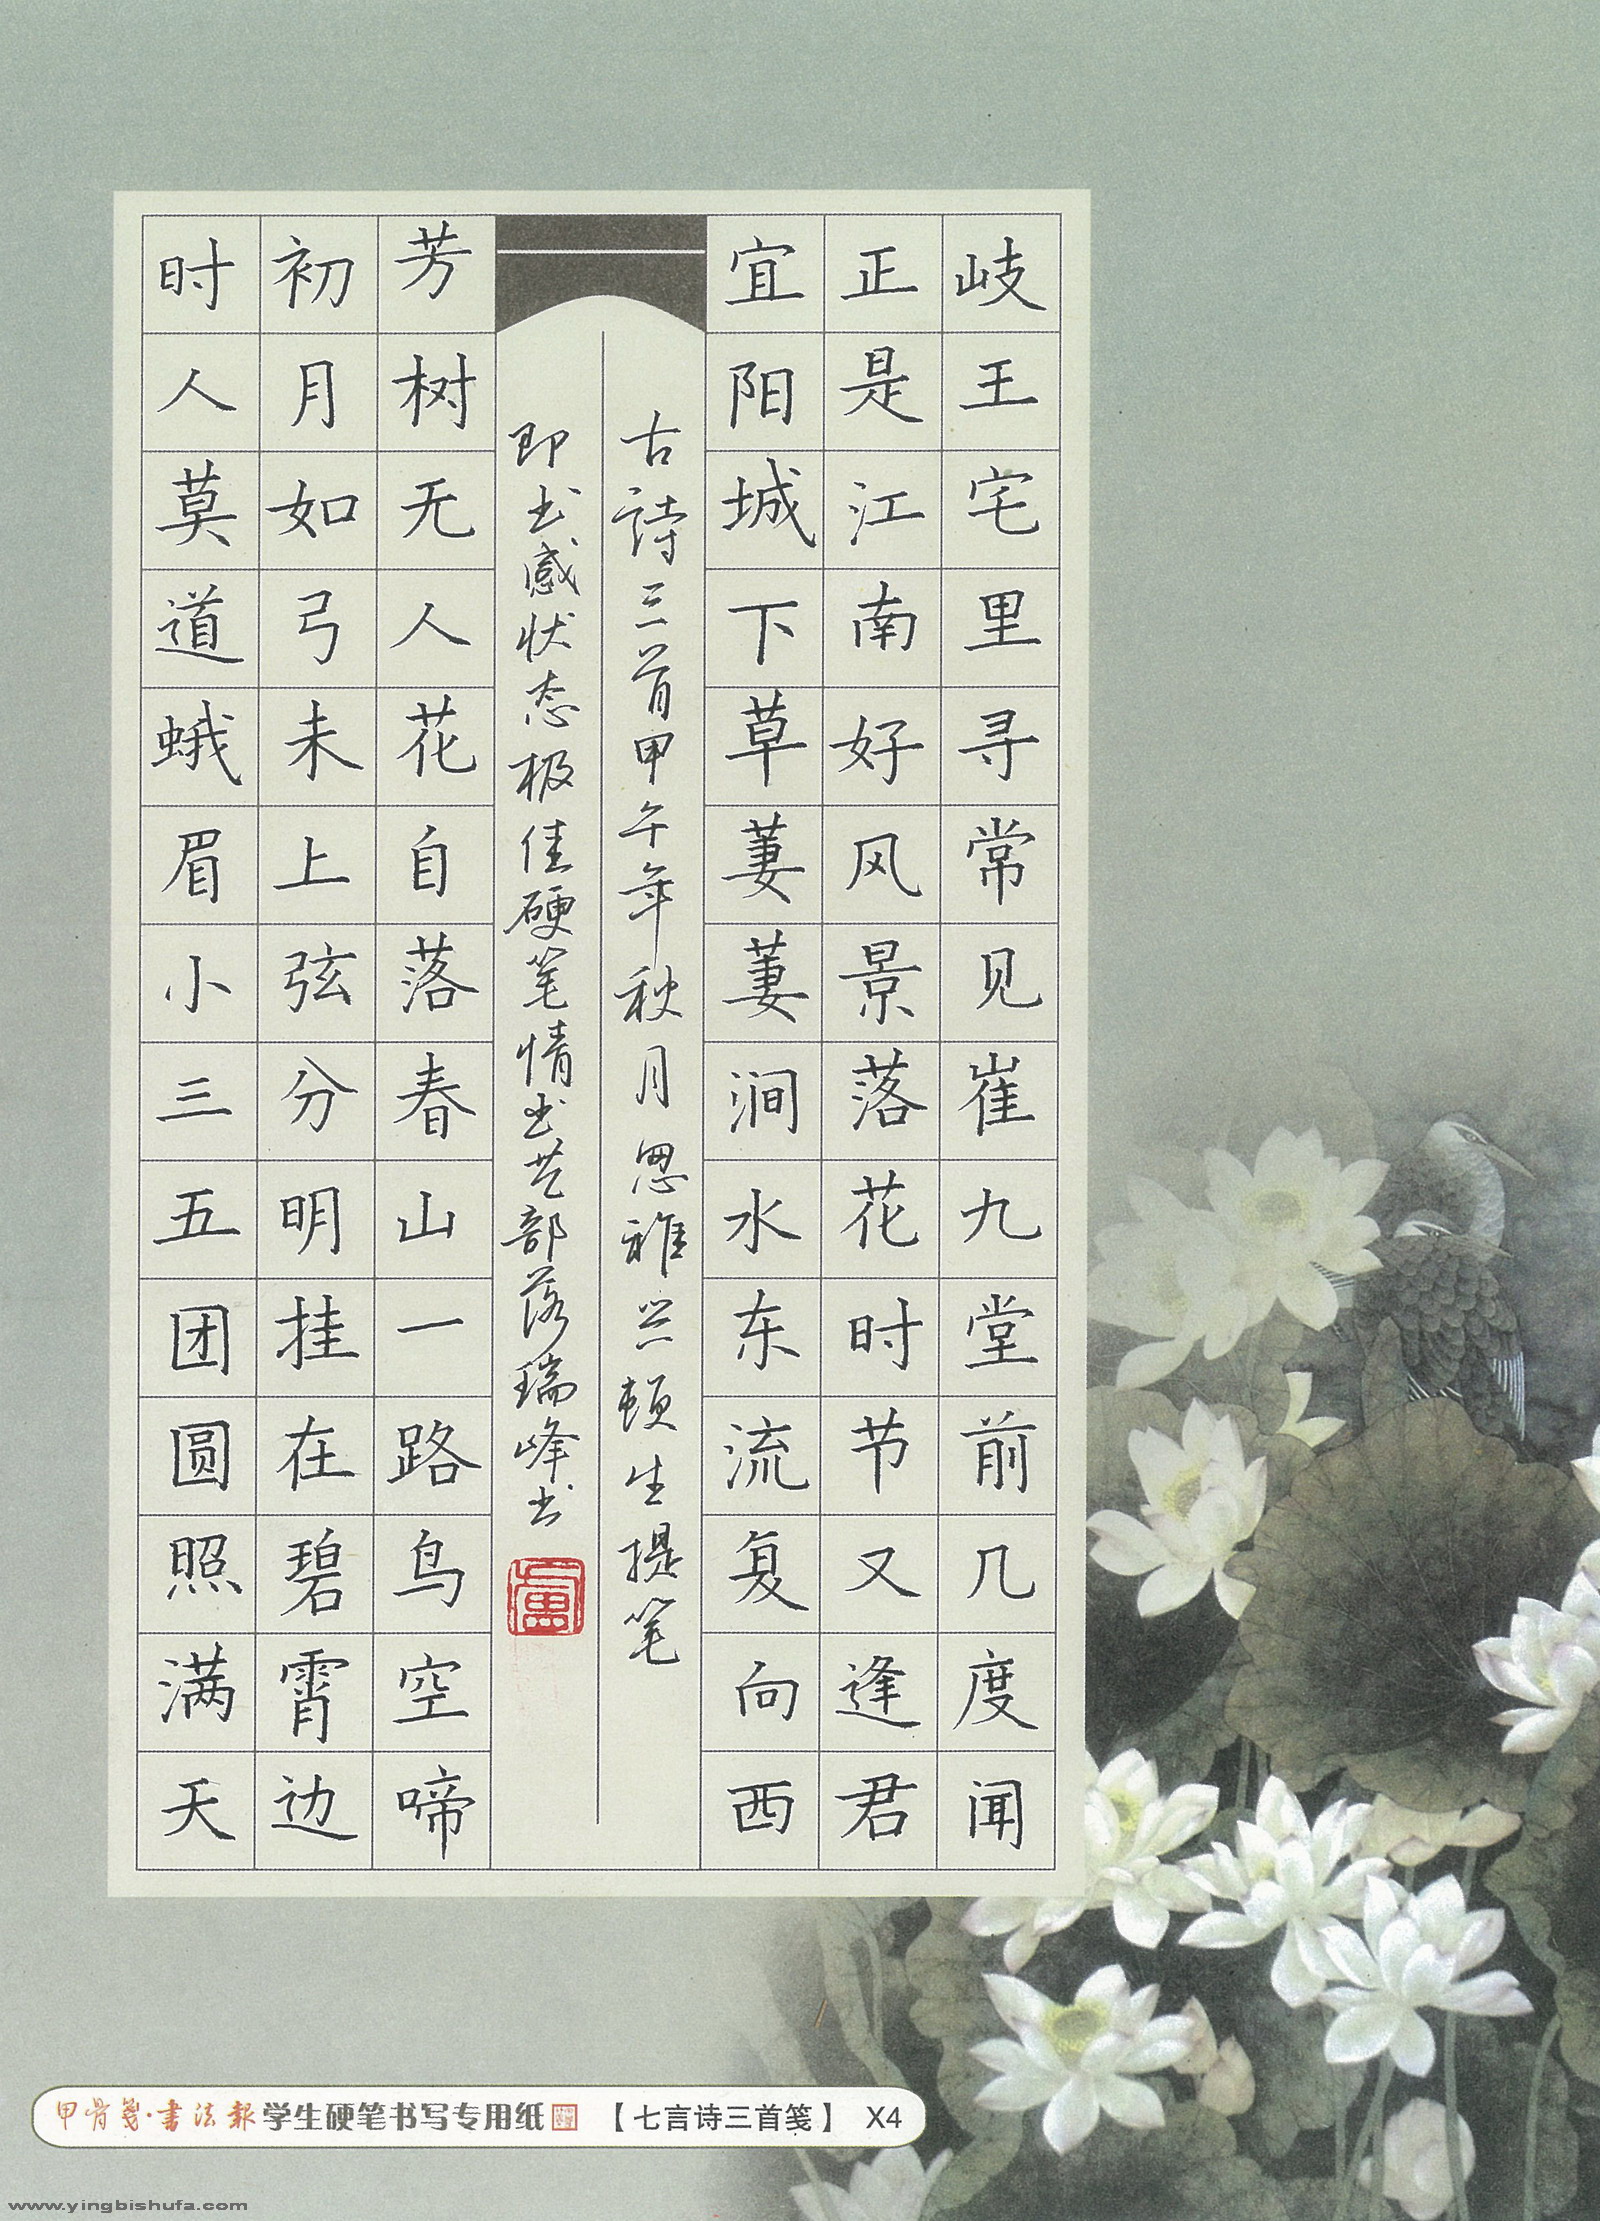 岐王宅里寻常见崔九堂前几度闻
正是江南好风景落花时节又逢君
宜阳城下草萋萋涧水东流复向西
古诗三首甲午年秋月忽雅兴顿生提笔
即书感状态极佳硬笔情书艺部落瑞峰书
芳树无人花自落春山一路鸟空啼
初月如弓未上弦分明挂在碧霄边
时人莫道蛾眉小三五团圆照满天
甲骨笺·書法報学生硬笔书写专用纸 【七言诗三首笺】 X4
www.yingbishufa.com